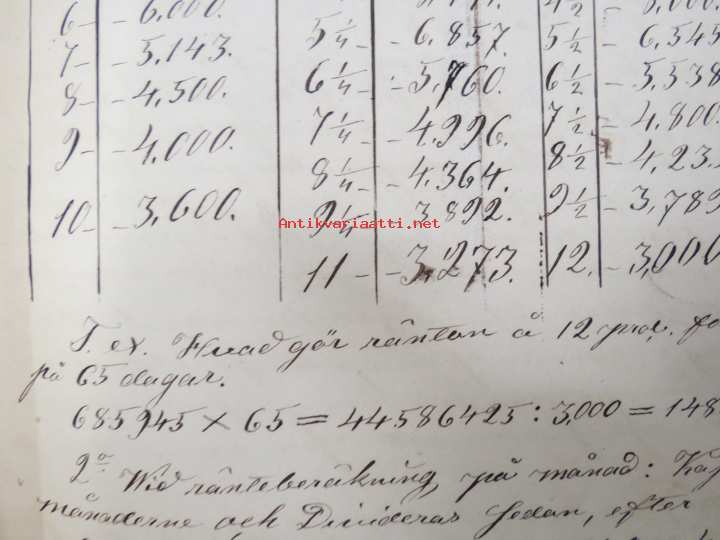 6 — 6,000. 4 1/2 8,000.
7 — 5,143. 5 1/4 — 6,857. 5 1/2 — 6,545
8 — 4,500. 6 1/4 — 5,760. 6 1/2 — 5,538
9 — 4,000. 7 1/4 — 4,996. 7 1/2 — 4,800.
8 1/4 — 4,364. 8 1/2 — 4,23
10 — 3,600. 9 1/4 3,892. 9 1/2 — 3,789
Antikvariaatti.net
11 — 3,273. 12. — 3,000
T. ex. Hvad gör räntan å 12 proc.
på 65 dagar.
685945 × 65 = 44586425 : 3,000 = 148
2o Wid ränteberäkning på månad:
månaderne och Divideras sedan, efter